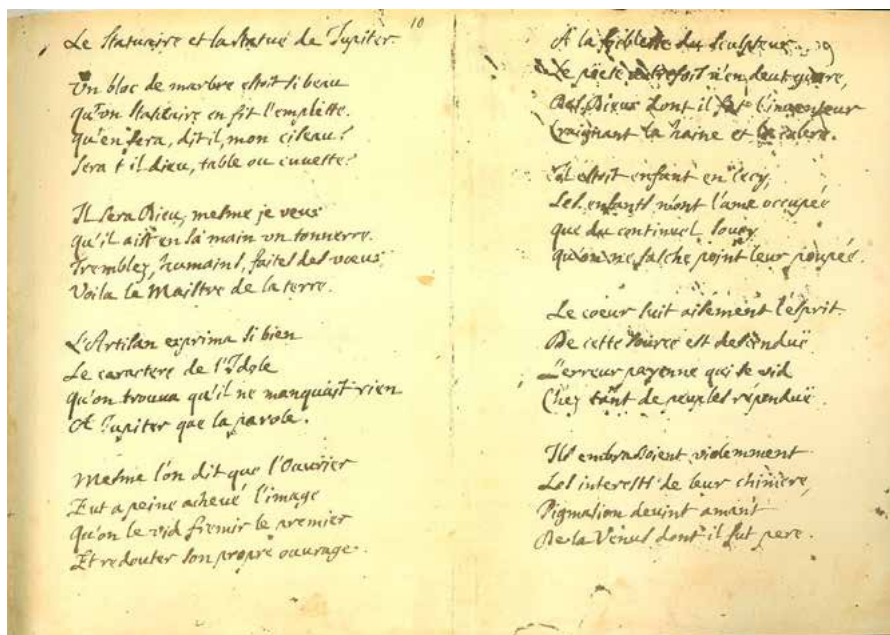 10
Le Statuaire et la Statue de Jupiter.
Un bloc de marbre estoit si beau
Qu'on Statuaire en fit l'emplette.
Qu'en fera, dit il, mon ciseau?
Sera t il dieu, table ou cuvette?
Il sera Dieu, mesme je veus
qu'il ait en sa main un tonnerre.
Tremblez, humains, faites des vœus
Voila le Maistre de la terre.
L'Artisan exprima si bien
Le caractere de l'Idole
Qu'on trouva qu'il ne manquast rien
A Jupiter que la parole.
Mesme l'on dit que l'Ouvrier
Eut a peine achevé l'image
Qu'on le vid fremir le premier
Et redouter son propre ouvrage.
A la foiblesse du Sculpteur
Le poete autrefois n'en deut guere,
Des Dieus dont il fut l'inventeur
Craignant la haine et la colere.
Il estoit enfant en cecy,
Les enfants n'ont l'ame occupée
que du continuel soucy
qu'on ne fasche point leur poupée.
Le coeur suit aisement l'esprit.
De cette source est descenduë
L'erreur payenne qui se vid
Chez tant de peuples répenduë
Ils embrassoient violemment
Les interests de leur chimere,
Pigmalion devint amant
De la Venus dont il fut pere.